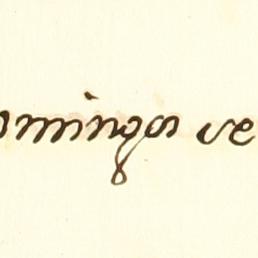 omingos se